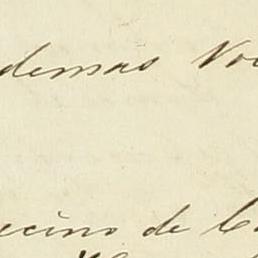 demas Vo
ecino de Ca